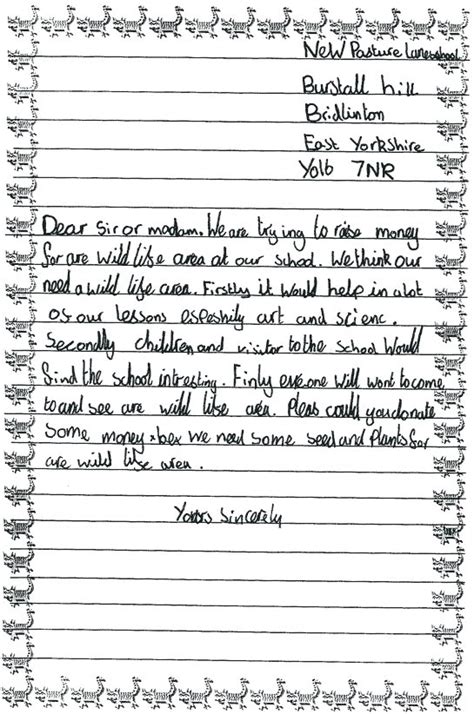 New Pasture Lane school
Burstall hill
Bridlinton
East Yorkshire
Yo16 7NR
Dear Sir or madam. We are trying to raise money
for are wild life area at our school. We think our
need a wild life area. Firstly it would help in a lot
of our lessons espeshily art and scienc.
Secondly children and visitor to the school would
find the school intresting. Finly eveone will wont to come
to and see are wild life area. Pleas could you donate
some money bex we need some seed and Plants for
are wild life area.
Yours Sincerely